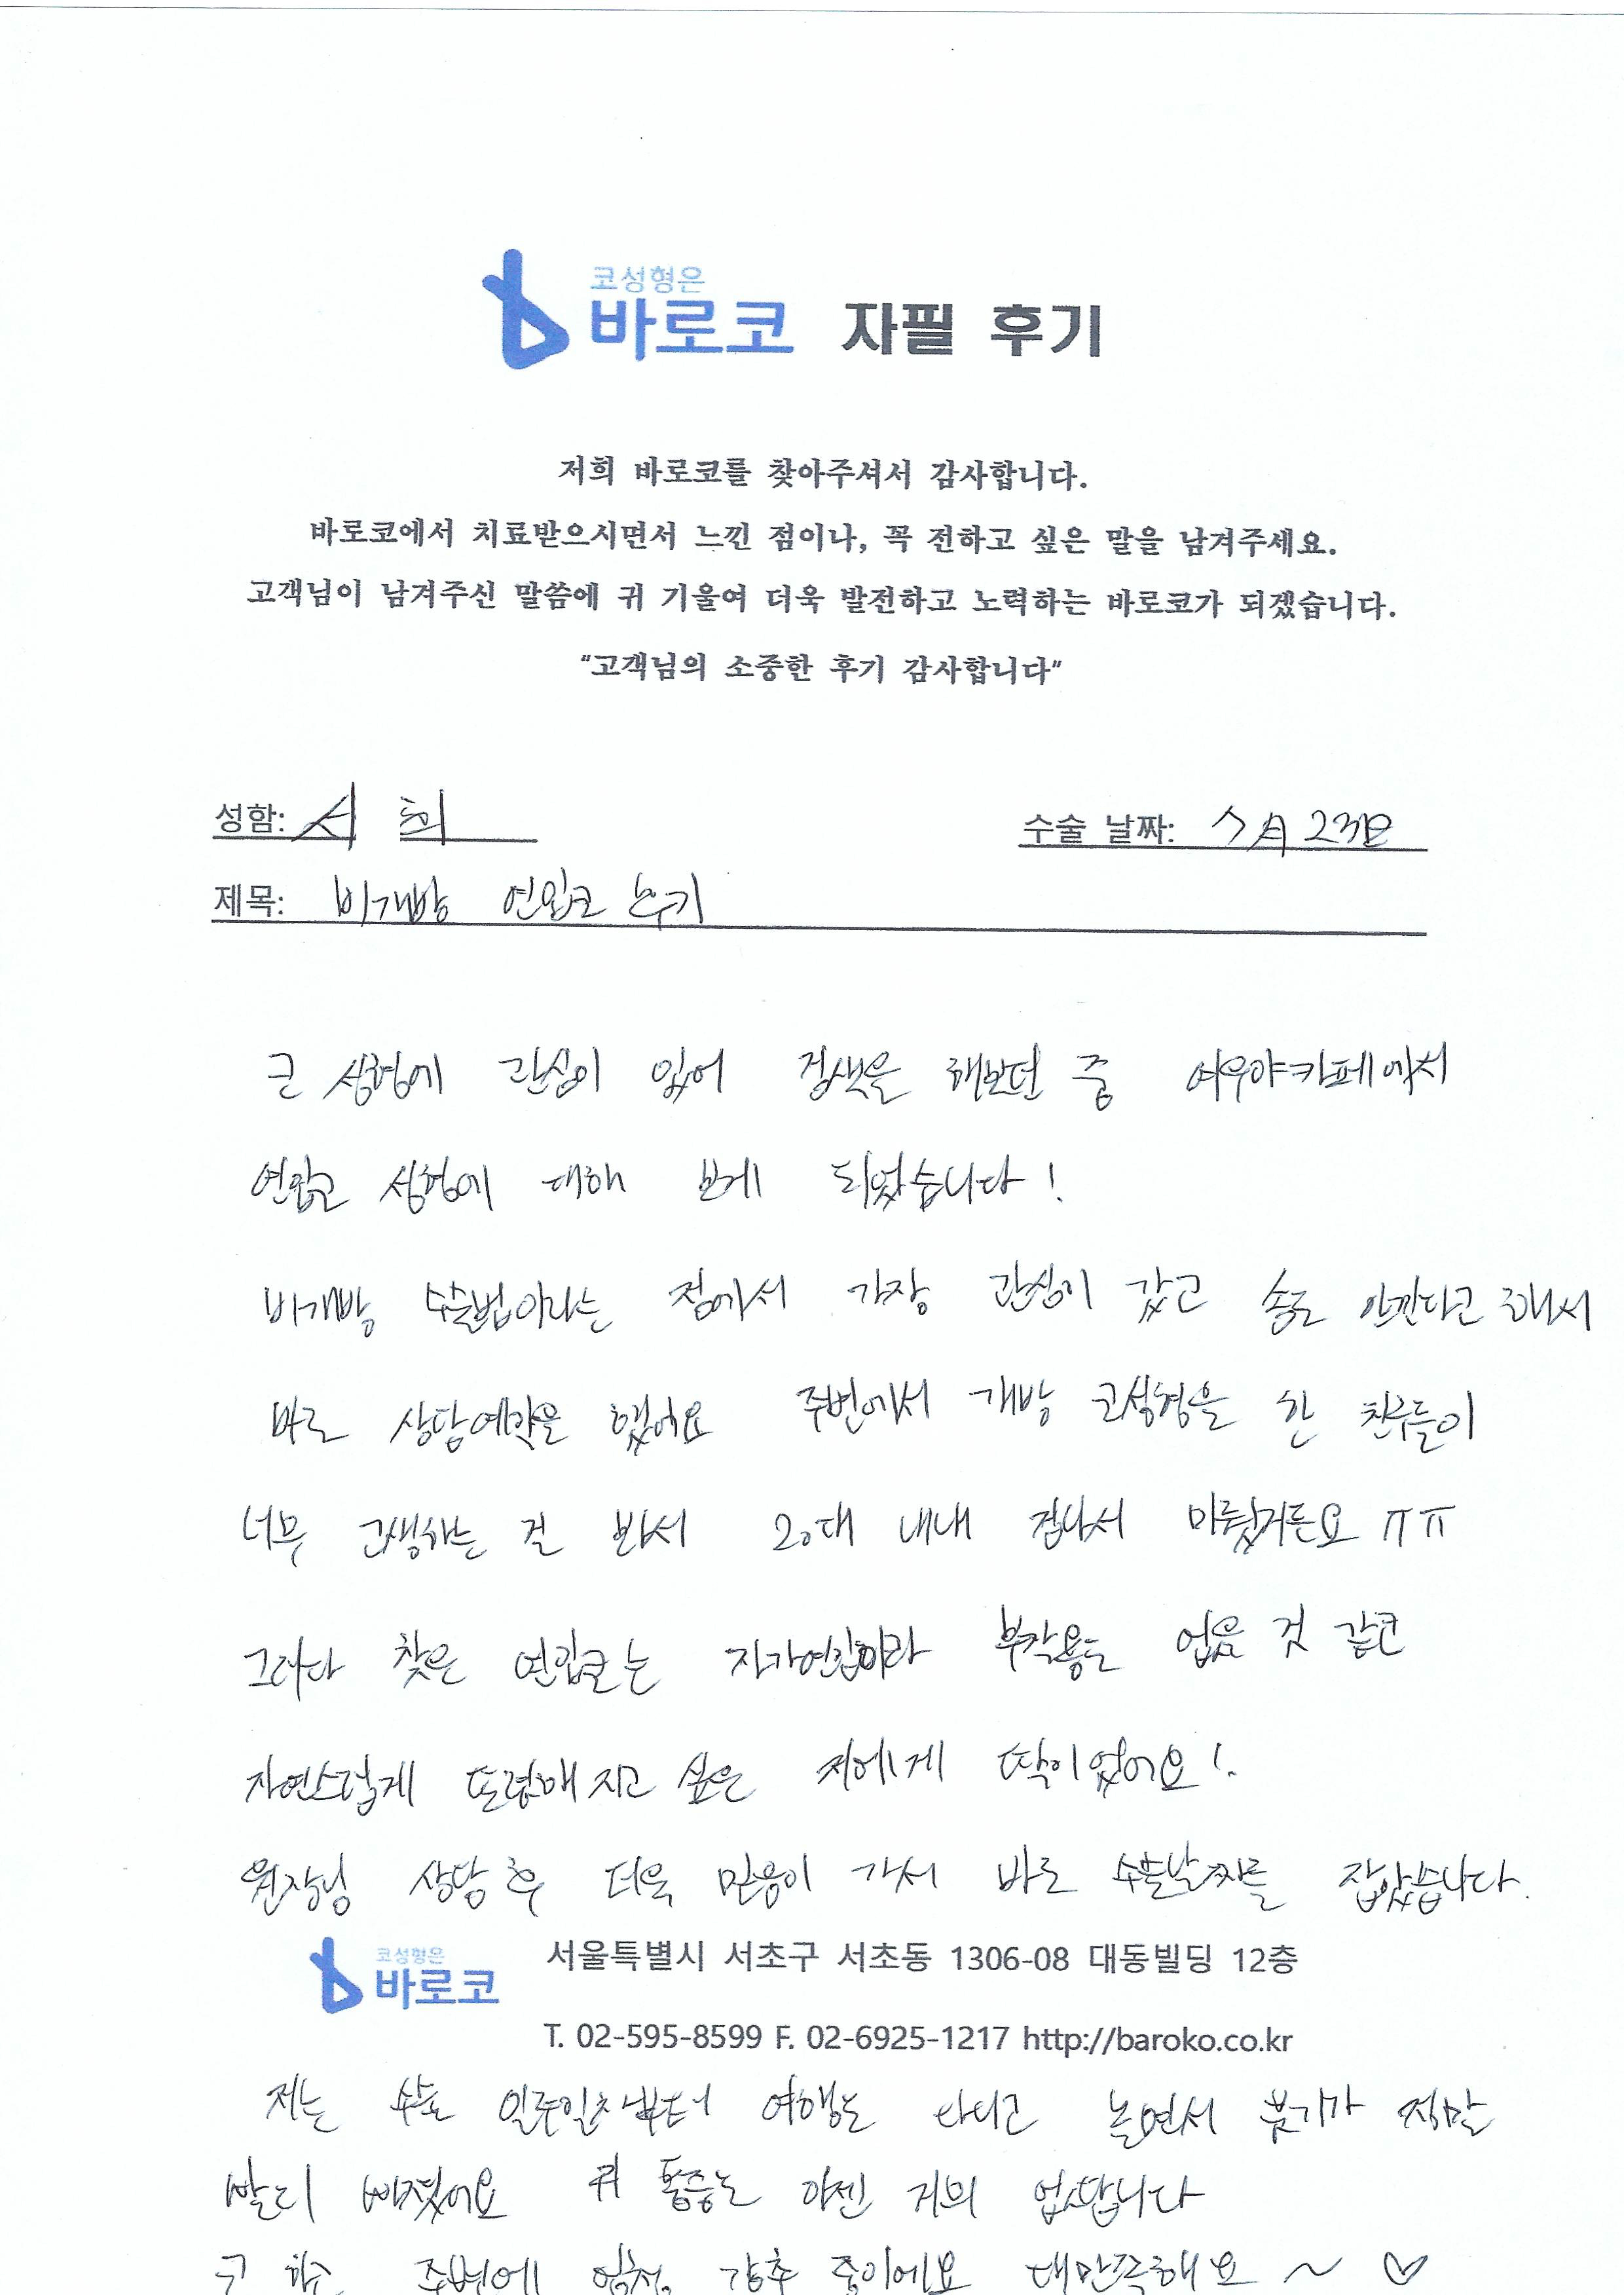 코성형은
바로코 자필 후기
저희 바로코를 찾아주셔서 감사합니다.
바로코에서 치료받으시면서 느낀 점이나, 꼭 전하고 싶은 말을 남겨주세요.
고객님이 남겨주신 말씀에 귀 기울여 더욱 발전하고 노력하는 바로코가 되겠습니다.
"고객님의 소중한 후기 감사합니다"
성함: 서 희 수술 날짜: 7月 23日
제목: 비개방 연입코 후기
코 성형에 관심이 있어 검색을 해보던 중 여우야카페에서
연입코 성형에 대해 보게 되었습니다!
비개방 수술법이라는 점에서 가장 관심이 갔고 솜도 안낀다고 해서
바로 상담예약을 했어요 주변에서 개방 코성형을 한 친구들이
너무 고생하는 걸 봐서 20대 내내 겁나서 미뤘거든요 ㅠㅠ
그러다 찾은 연입코는 자가연골이라 부작용도 없을 것 같고
자연스럽게 또렷해지고 싶은 저에게 딱이었어요!
원장님 상담 후 더욱 믿음이 가서 바로 수술날짜를 잡았습니다.
코성형은
바로코 서울특별시 서초구 서초동 1306-08 대동빌딩 12층
T. 02-595-8599 F. 02-6925-1217 http://baroko.co.kr
저는 수술 일주일차부터 여행도 다니고 놀면서 붓기가 정말
빨리 빠졌어요 귀 통증도 이젠 거의 없답니다
주변에 엄청 강추 중이에요 대만족해요 ~ ♡